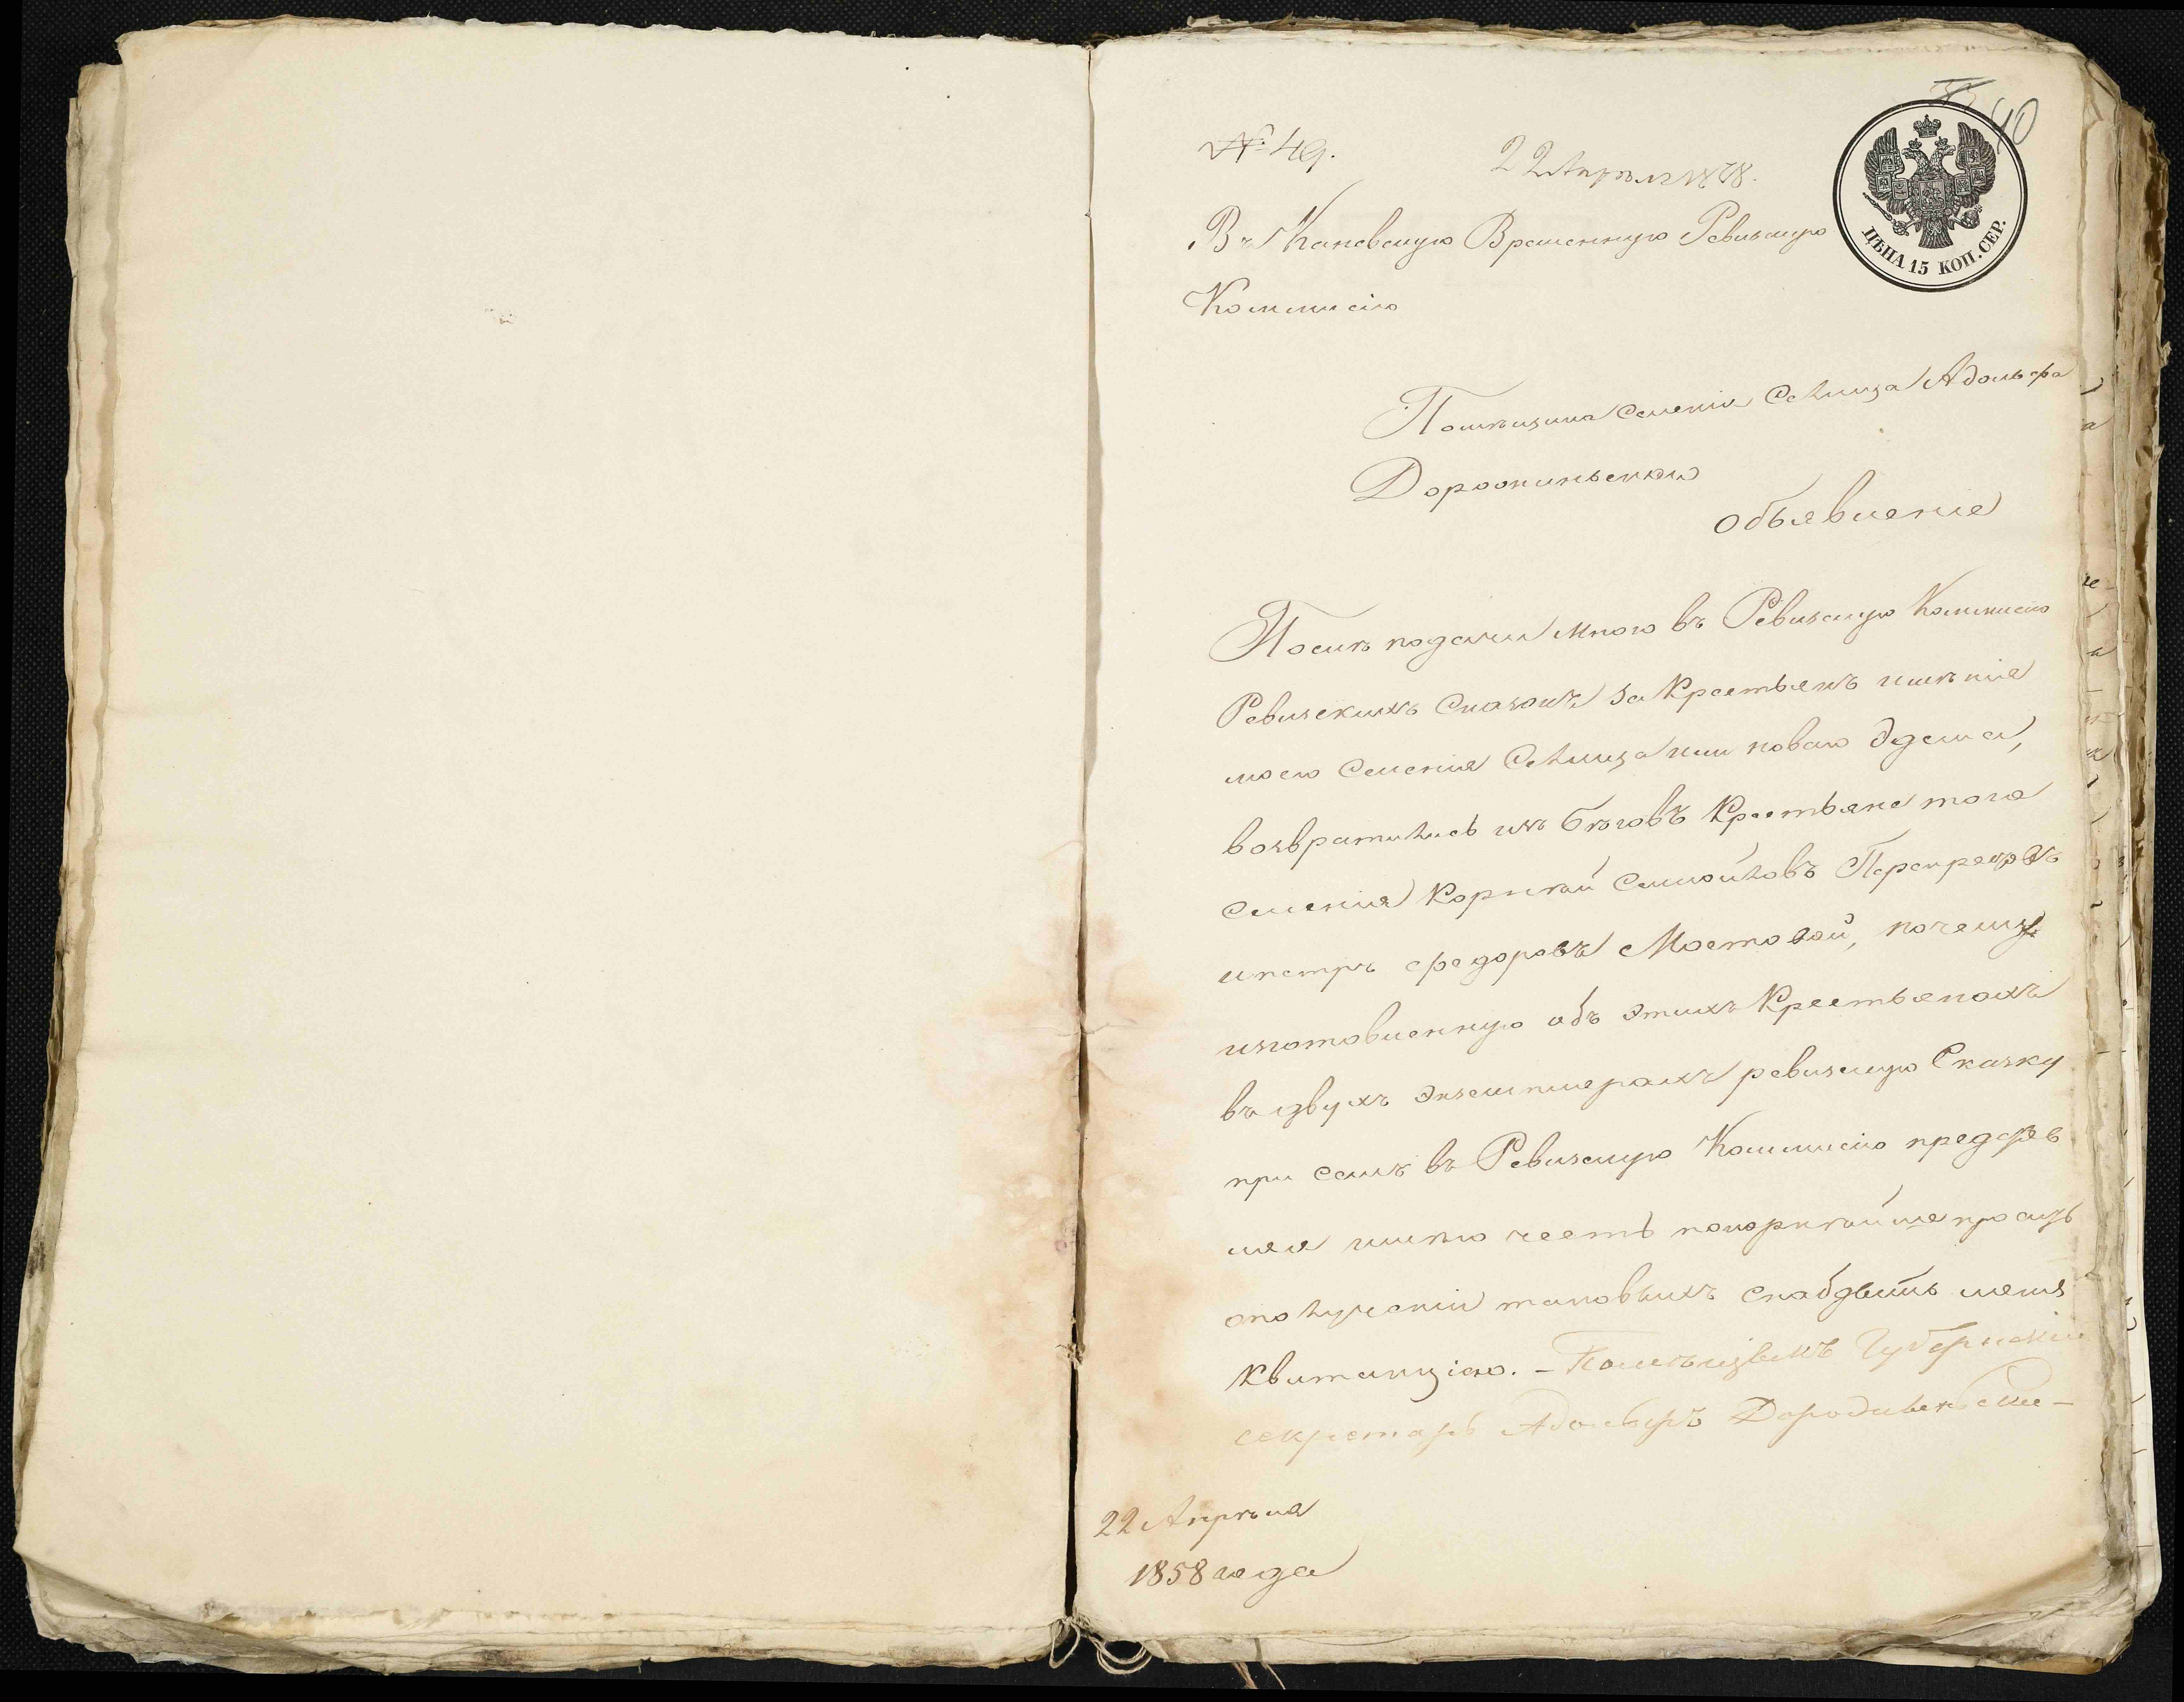 40
№ 49.
22 Апреля 1858.
ЦѢНА 15 КОП. СЕР.
Въ Каневскую Временную Ревизскую
Коммисію
Помѣщика Селенія Селища Адольфа
Объявленіе
Послѣ подачи мною въ Ревизскую Коммисію
Ревизскихъ Сказокъ за Крестьянъ имѣнія
моего Селенія Селища или новаго Эдема,
возвратились изъ бѣговъ Крестьяне того
Селенія Корнѣй Самойловъ
и Петръ Федоровъ Мостовой, почему
изготовленную объ этихъ Крестьянахъ
въ двухъ экземплярахъ ревизскую Сказку
при семъ въ Ревизскую Коммисію представ
ляя имѣю честь покорнѣйше просить
о полученіи таковыхъ снабдить меня
Квитанціею. – Помѣщикъ Губернскій
секретарь Адольфъ
22 Апрѣля
1858 года